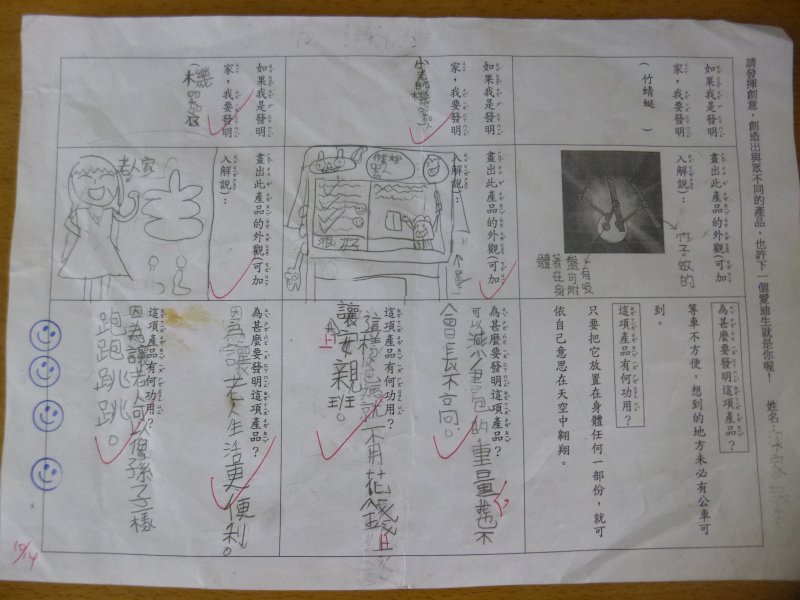 請發揮創意，創造出與眾不同的產品，也許下一個愛迪生就是你喔！
姓名：
如果我是發明
家，我要發明
（竹蜻蜓）
畫出此產品的外觀(可加
入解說)：
竹子做的
有吸
盤可附
著在身
體
為甚麼要發明這項產品？
等車不方便，想到的地方未必有公車可
到。
這項產品有何功用？
只要把它放置在身體任何一部份，就可
依自己意思在天空中翱翔。
如果我是發明
家，我要發明
畫出此產品的外觀(可加
入解說)：
為甚麼要發明這項產品？
可以減少書包的重量也不
會長不高。
這項產品有何功用？
不用花錢
上
讓
安親班。
如果我是發明
家，我要發明
（機器
畫出此產品的外觀(可加
入解說)：
老人家
為甚麼要發明這項產品？
因為讓老人生活更便利。
這項產品有何功用？
因為讓老人可以像孫子一樣
跑跑跳跳。
10/14